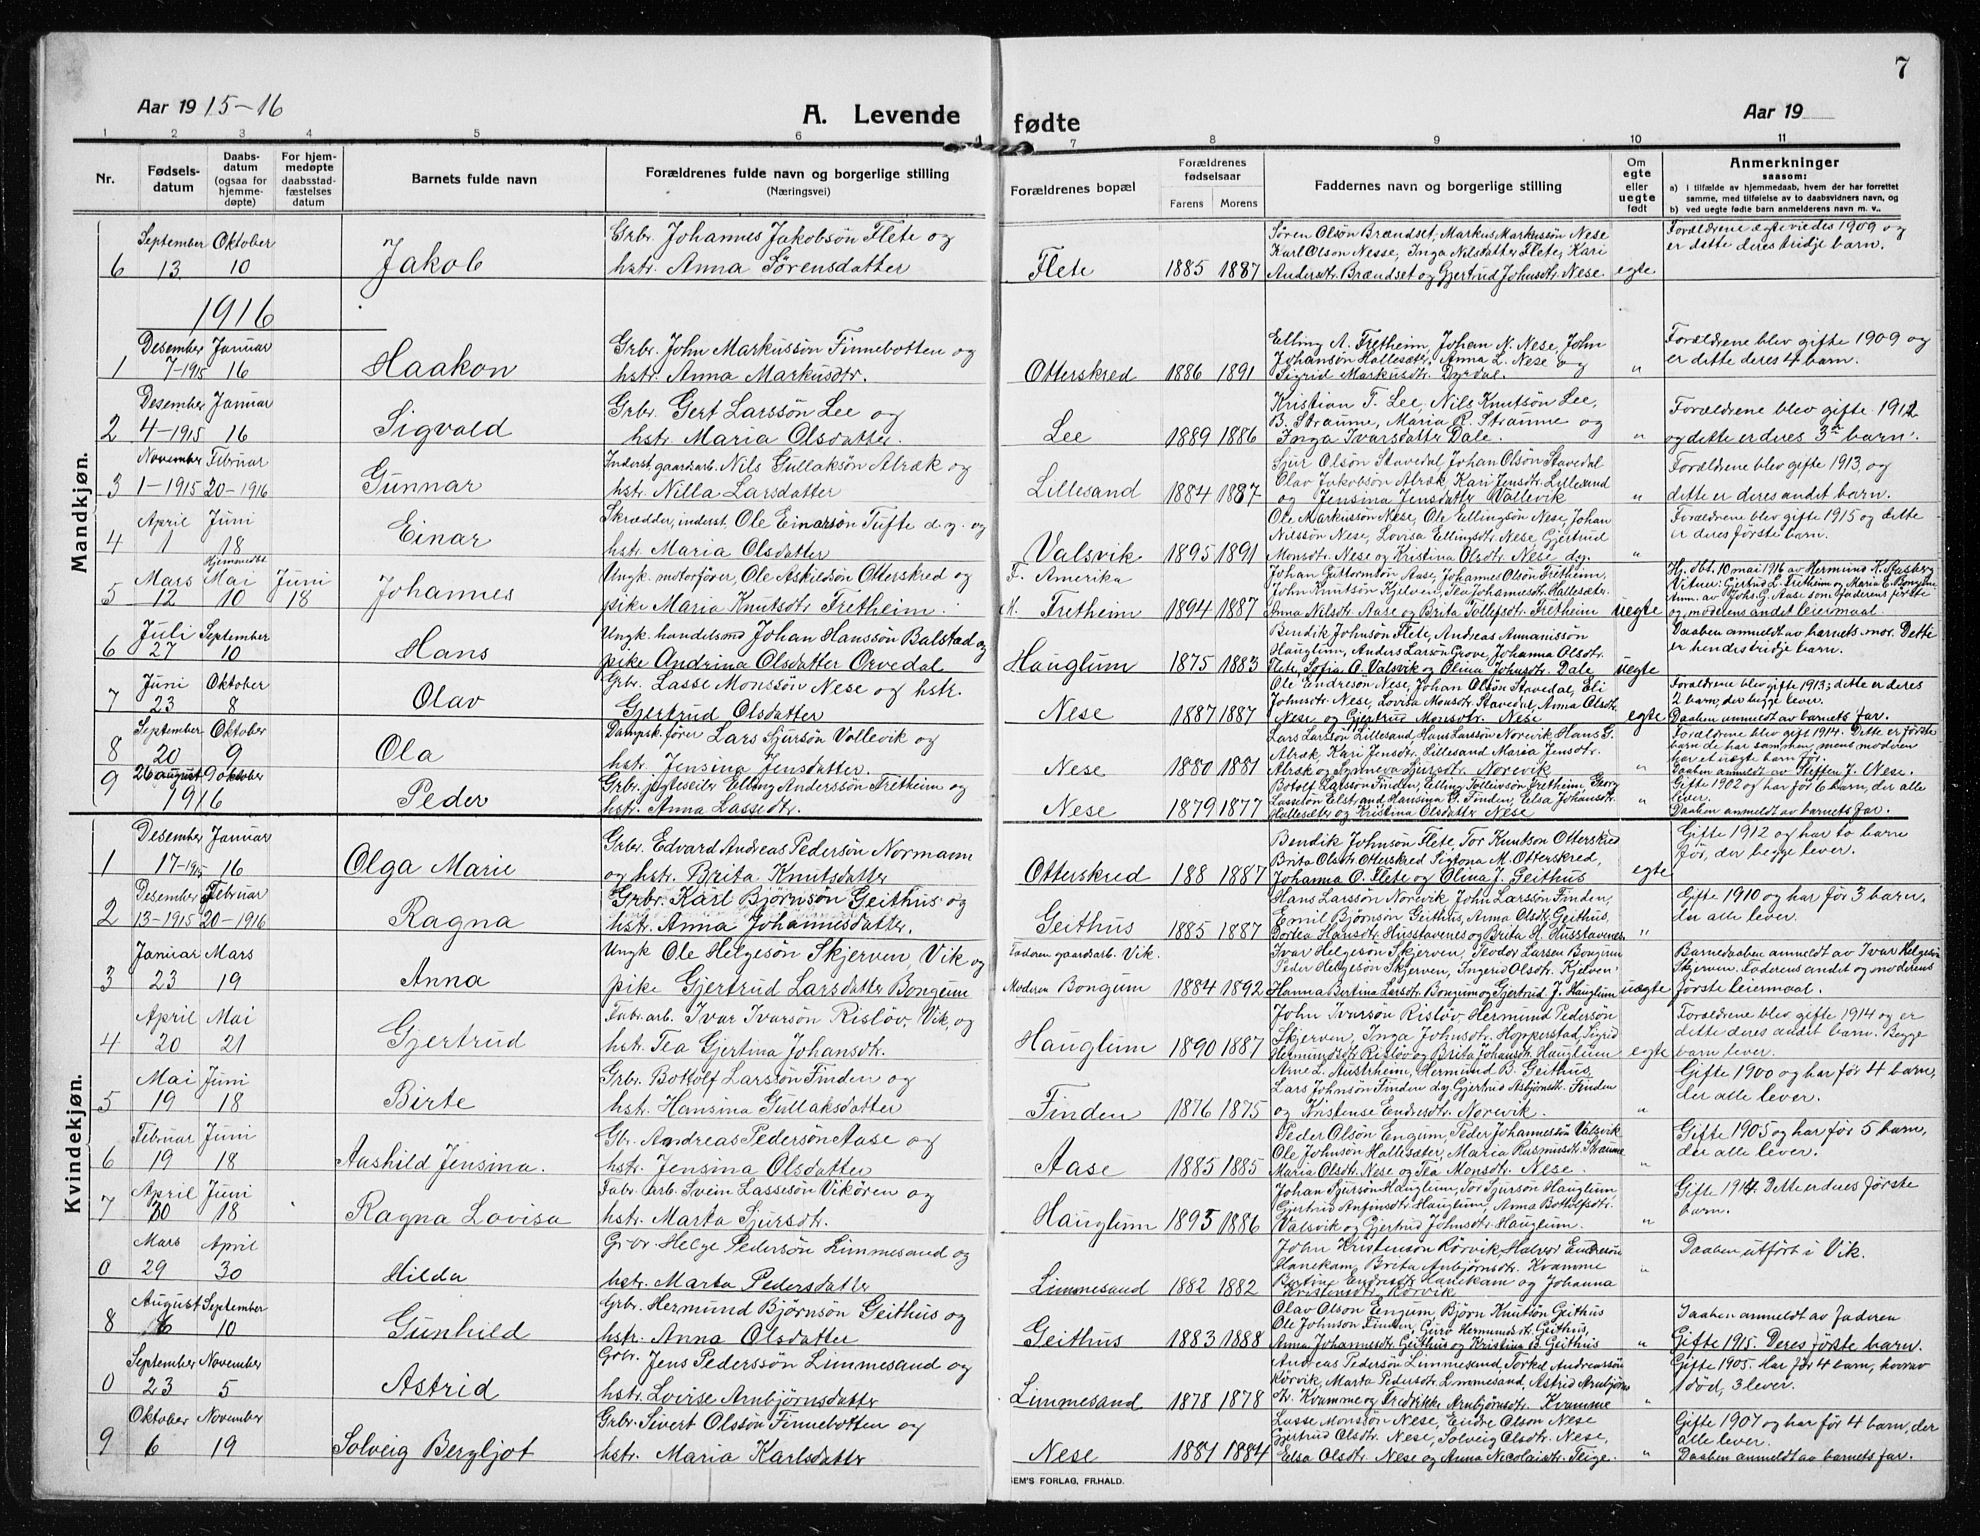 7
Aar 1915-16
A. Levende fødte
Aar 19
1 2 3 4 5 6 7 8 9 10 11
Nr.
Fødsels-
datum
Daabs-
datum
(ogsaa for
hjemme-
døpte)
For hjem-
medøpte
daabsstad-
fæstelses
datum
Barnets fulde navn
Forældrenes fulde navn og borgerlige stilling
(Næringsvei)
Forældrenes bopæl
Forældrenes
fødselsaar
Farens Morens
Faddernes navn og borgerlige stilling
Om
egte
eller
uegte
født
Anmerkninger
saasom:
a) i tilfælde av hjemmedaab, hvem der har forrettet
samme, med tilføielse av to daabsvidners navn, og
b) ved uegte fødte barn anmelderens navn m. v.
Mandkjøn.
September Oktober
6 13 10
Jakob
Grbr. Johannes Jakobsøn Flete og
hstr. Anna Sørensdatter
Flete 1885 1887
Søren Olsön Brændset, Markus Markussön Nese
Karl Olson Nesse, Inga Nilsdatter Flete, Kari
Andersdtr. Brændset og Gjertrud Johnsdtr. Nese
egte
Forældrene egteviedes 1909 og
er dette deres tridje barn.
1916
Desember Januar
1 7-1915 16
Haakon
Grbr. John Markussön Finnebotten og
hstr. Anna Markusdtr.
Otterskred 1886 1891
Elling A. Fretheim, Johan N. Nese, John
Johansön Hallesæter, Anna L. Nese og
Sigrid Markusdtr. Dyrdal.
"
Forældrene blev gifte 1909 og
er dette deres 4 barn.
Desember Januar
2 4-1915 16
Sigvald
Grbr. Gert Larssön Lee og
hstr. Maria Olsdatter.
Lee 1889 1886
Kristian T. Lee, Nils Knutsön Lee,
B. Straume, Maria R. Straume og
Inga Ivarsdatter Dale.
"
Forældrene blev gifte 1912
og dette er deres 3die barn.
November Februar
3 1-1915 20-1916
Gunnar
Inderst, gaardsarb. Nils Gullaksön Alræk og
hstr. Nilla Larsdatter
Lillesand 1884 1887
Sjur Olsön Stavedal, Johan Olsön Stavedal
Olav Jakobsön Alræk, Kari Jensdtr. Lillesand
og Jensina Jensdatter Vallevik
"
Forældrene blev gifte 1913, og
dette er deres andet barn.
April Juni
4 1 18
Einar
Skrædder, inderst. Ole Einarsön Tufte d.y. og
hstr. Maria Olsdatter
Valsvik 1895 1891
Ole Markussön Nese, Ole Ellingsön Nese, Johan
Nilssön Nese, Lovisa Ellingsdtr. Nese, Gjertrud
Monsdtr. Nese og Kristina Olsdtr. Nese d.y.
"
Forældrene blev gifte 1915 og dette
er deres første barn.
Hjemmedte
Mars Mai Juni
5 12 10 18
Johannes
Ungk. motorfører, Ole Askildsön Otterskred og
pike Maria Knutsdtr. Fretheim.
F. Amerika
M. Fretheim 1894 1887
Johan Guttormsön Aase, Johannes Olsön Fretheim,
John Knutsön Kjelven, Tea Johannesdtr. Hallesæter,
Anna Nilsdtr. Aase og Brita Tollefsdtr. Fretheim
uegte
Hj. dbt. 10 mai 1916 av Hermund K. Stasberg
Vitner: Gjertrud L. Fretheim og Maria E. Bongum
Anm. av Johs. G. Aase som faderens første
og moderens andet leiermaal.
Juli September
6 27 10
Hans
Ungk. handelsmd Johan Hanssön Balstad og
pike Andrina Olsdatter Orvedal
Hauglum 1875 1883
Bendik Johnsön Flete, Andreas Annanissön
Hauglum, Anders Larsön Grove, Johanna Olsdtr.
Flete, Sofia O. Valsvik og Olina Johnsdtr. Dale.
uegte
Daaben anmeldt av barnets mor. Dette
er hendes tridje barn.
Juni Oktober
7 23 8
Olav
Grbr. Lasse Monssön Nese og hstr.
Gjertrud Olsdatter
Nese 1887 1887
Ole Endresön Nese, Johan Olsön Stavedal, Eli
Johnsdtr. Nese, Lovisa Monsdtr. Stavedal, Anna Olsdtr.
Nese og Gjertrud Monsdtr. Nese
egte
Forældrene blev gifte 1913; dette er deres
2 barn, der begge lever.
Daaben anmeldt av barnets far.
September Oktober
8 20 9
Ola
Dampsk.fører Lars Sjursön Vallevik og
hstr. Jensina Jensdatter.
Nese 1880 1881
Lars Larsön Lillesand, Hans Larssön Norevik, Hans G.
Alræk, Kari Jensdtr. Lillesand, Maria Jensdtr.
Alræk og Synneva Sjursdtr. Norevik
"
Forældrene blev gift 1914. Dette er første
barn de har sammen, mens moderen
har et uegte barn før.
Daaben anmeldt av Steffen J. Nese.
9 26 august 9 oktober
1916
Peder
Grbr. jagteseiler Elling Anderssön Fretheim og
hstr. Anna Lassedtr.
Nese 1879 1877
Botolf Larssön Finden, Elling Tollevsön Fretheim, Georg
Lassesön Elstrand, Hansina G. Finden, Elsa Johansdtr.
Hallesæter og Kristina Olsdatter Nese
"
Gifte 1902 og har før 6 barn, der alle
lever.
Daaben anmeldt av barnets far.
Kvindekjøn.
Desember Januar
1 17-1915 16
Olga Marie
Grbr. Edvard Andreas Pedersön Normann
og hstr. Brita Knutsdatter
Otterskred 188 1887
Bendik Johnson Flete, Tor Knutson Otterskred
Brita Olsdtr. Otterskred, Sigtona M. Otterskred,
Johanna O. Flete og Olina J. Geithus
egte
Gifte 1912 og har to barn
før, der begge lever.
Desember Februar
2 13-1915 20-1916
Ragna
Grbr. Karl Bjørnsön Geithus og
hstr. Anna Johannesdatter.
Geithus 1885 1887
Hans Larssön Norevik, John Larssön Finden,
Emil Bjørnsön Geithus, Anna Olsdtr. Geithus,
Dortea Hansdtr. Husstavenes og Brita H. Husstavenes
"
Gifte 1910 og har før 3 barn,
der alle lever.
Januar Mars
3 23 19
Anna
Ungk Ole Helgesön Skjerven, Vik og
pike Gjertrud Larsdatter Bongum
Faderen gaardsarb. Vik.
Moderen Bongum 1884 1892
Ivar Helgesön Skjerven, Teodor Larsen Bongum
Peder Helgesön Skjerven, Ingerid Olsdtr. Kjelven
Hanna Bertina Larsdtr. Bongum og Gjertrud J. Hauglum
uegte
Barnedaaben anmeldt av Ivar Helgesön
Skjerven. Faderens andet og moderens
første leiermaal.
April Mai
4 20 21
Gjertrud
Fabr.arb. Ivar Ivarsön Risløv, Vik, og
hstr. Tea Gjertina Johansdtr.
Hauglum 1890 1887
John Ivarsön Risløv, Hermund Pedersön
Skjerven, Inga Johnsdtr. Hopperstad, Sigrid
Hermundsdtr. Risløv og Brita Johansdtr. Hauglum
egte
Forældrene blev gifte 1914 og er
dette deres andet barn. Begge
barn lever.
Mai Juni
5 19 18
Birte
Grbr. Bottolf Larssön Finden og
hstr. Hansina Gullaksdatter
Finden 1876 1875
Arne L. Austrheim, Hermund B. Geithus,
Lars Johnsön Finden d.y. Gjertrud Asbjørnsdtr. Finden
og Kristense Endresdtr. Norevik.
"
Gifte 1900 og har før 4 barn,
der alle lever.
Februar Juni
6 19 18
Aashild Jensina.
Gbr. Andreas Pedersön Aase og
hstr. Jensina Olsdatter
Aase 1885 1885
Peder Olsön Engum, Peder Johannessön Valsvik
Ole Johnson Hallesæter, Maria Rasmusdtr. Straume
Maria Olsdtr. Nese og Tea Monsdtr. Nese.
"
Gifte 1905 og har før 5 barn,
der alle lever.
April Juni
7 30 18
Ragna Lovisa
Fabr. arb. Svein Lassesön Vikören og
hstr. Marta Sjursdtr.
Hauglum 1895 1886
Johan Sjursön Hauglum, Tor Sjursön Hauglum,
Gjertrud Anfinsdtr. Hauglum, Anna Bottolfsdtr.
Valsvik og Gjertrud Johnsdtr. Hauglum.
"
Gifte 1914. Dette er deres første
barn.
Mars April
0 29 30
Hilda
Grbr. Helge Pedersön Limmesand og
hstr. Marta Pedersdatter
Limmesand 1882 1882
John Kristenson Rørvik, Halvor Endresön
Hanekam, Brita Anbjørnsdtr. Kvamme
Bertine Endresdtr. Hanekam og Johanna
Kristensdtr. Rørvik
"
Daaben utført i Vik.
August September
8 6 10
Gunhild
Grbr. Hermund Bjørnsön Geithus og
hstr. Anna Olsdatter
Geithus 1883 1888
Olav Olson Engum, Bjørn Knutsön Geithus
Ole Johnson Finden, Guro Hermundsdtr. Geithus
Anna Johannesdtr. Geithus og Kristina B. Geithus
"
Daaben anmeldt av faderen
Gifte 1915. Deres første barn.
September November
0 23 5
Astrid
Grbr. Jens Pederssön Limmesand og
hstr. Lovise Arnbjörnsdatter
Limmesand 1878 1878
Andreas Pedersön Limmesand, Torkel Andreassön
Rørvik, Marta Pedersdtr. Limmesand, Astrid Arnbjørns
dtr. Kvamme og Fredrikke Arnbjørnsdtr. Kvamme
"
Gifte 1905. Har før 4 barn, hvorav
1 død, 3 lever.
Oktober November
9 6 19
Solveig Bergljot
Grbr. Sivert Olssön Finnebotten og
hstr. Maria Karlsdatter
Nese 1881 1884
Lasse Monsson Nese, Endre Olson Nese
Gjertrud Olsdtr. Nese, Solveig Olsdtr. Nese,
Elsa Olsdtr. Nese og Anna Nicolaisdtr. Teige.
"
Gifte 1907 og har før 4 barn, der
alle lever.
Daaben anmeldt av barnets far.
SEM'S FORLAG, FR.HALD.